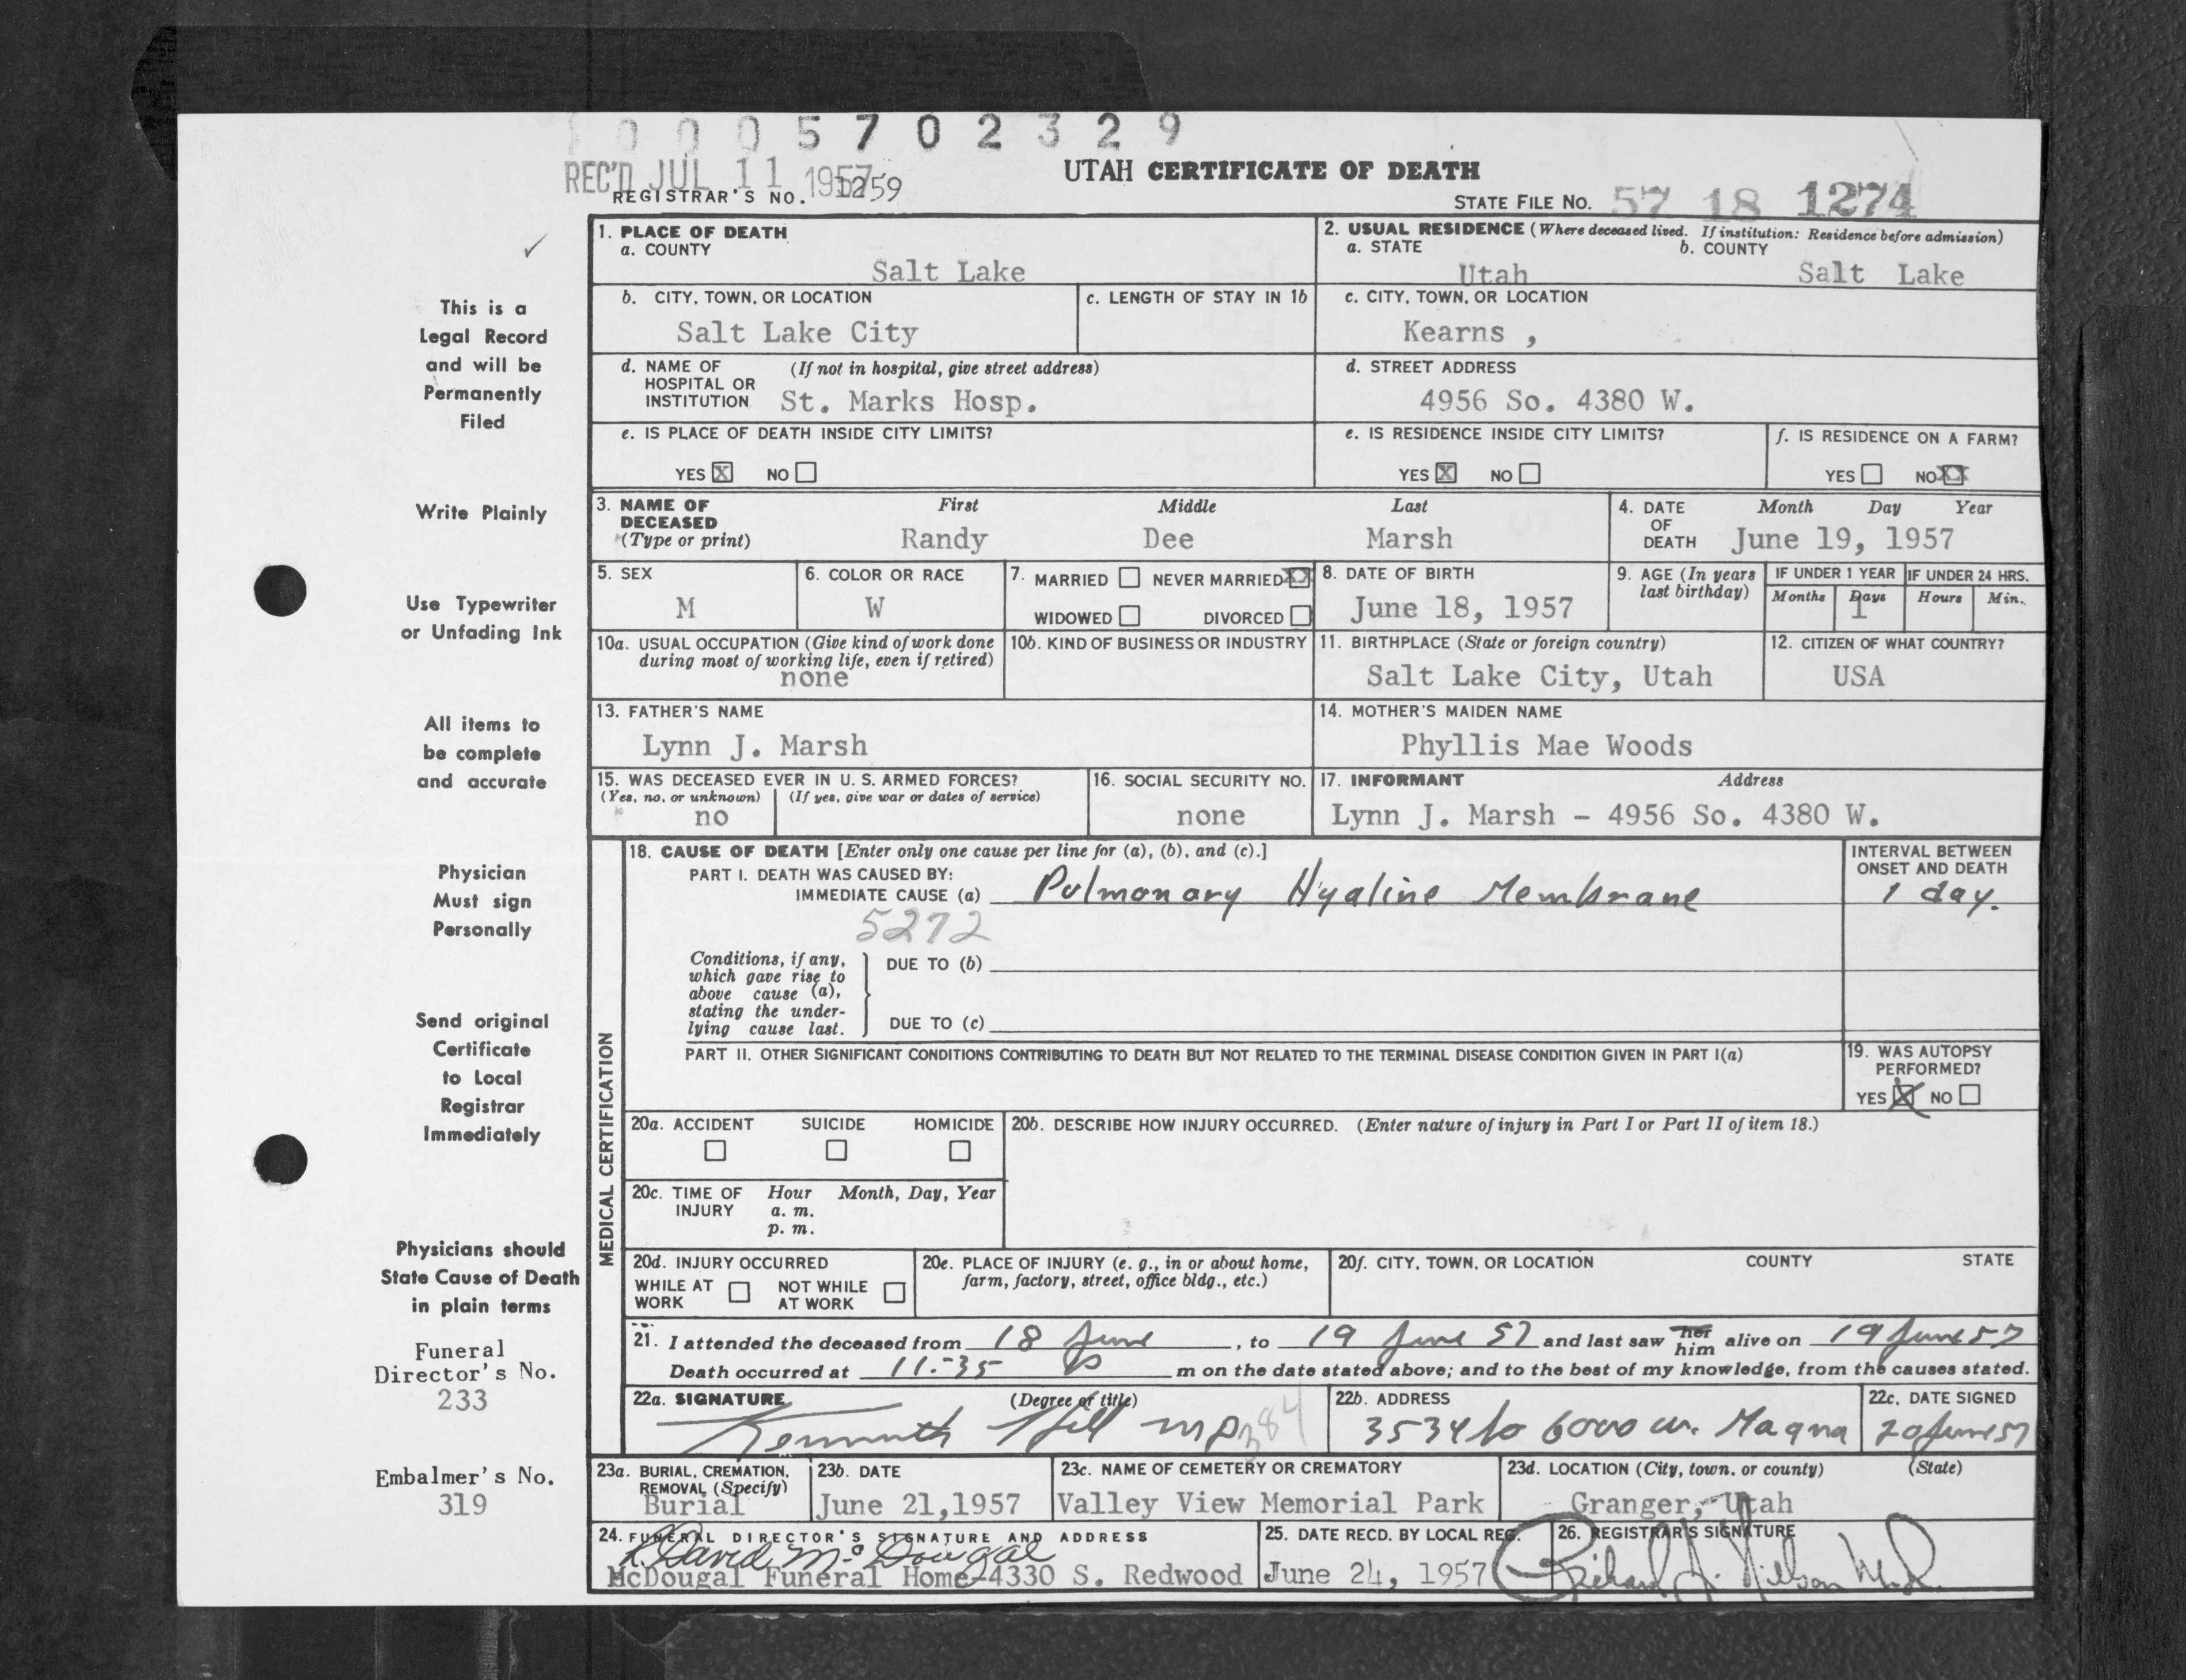 10005702329
REC'D JUL 11 1957
UTAH CERTIFICATE OF DEATH
REGISTRAR'S NO. 1259
STATE FILE NO. 57 18 1274
This is a
Legal Record
and will be
Permanently
Filed
Write Plainly
Use Typewriter
or Unfading Ink
All items to
be complete
and accurate
Physician
Must sign
Personally
Send original
Certificate
to Local
Registrar
Immediately
Physicians should
State Cause of Death
in plain terms
Funeral
Director's No.
233
Embalmer's No.
319
1. PLACE OF DEATH
a. COUNTY
Salt Lake
2. USUAL RESIDENCE (Where deceased lived. If institution: Residence before admission)
a. STATE b. COUNTY
Utah Salt Lake
b. CITY, TOWN, OR LOCATION
Salt Lake City
c. LENGTH OF STAY IN 1b
c. CITY, TOWN, OR LOCATION
Kearns ,
d. NAME OF (If not in hospital, give street address)
HOSPITAL OR
INSTITUTION St. Marks Hosp.
d. STREET ADDRESS
4956 So. 4380 W.
e. IS PLACE OF DEATH INSIDE CITY LIMITS?
YES X NO
e. IS RESIDENCE INSIDE CITY LIMITS?
YES X NO
f. IS RESIDENCE ON A FARM?
YES NO XX
3. NAME OF First Middle Last
DECEASED
(Type or print) Randy Dee Marsh
4. DATE Month Day Year
OF
DEATH June 19, 1957
5. SEX
M
6. COLOR OR RACE
W
7. MARRIED NEVER MARRIED XX
WIDOWED DIVORCED
8. DATE OF BIRTH
June 18, 1957
9. AGE (In years
last birthday)
IF UNDER 1 YEAR
Months Days
1
IF UNDER 24 HRS.
Hours Min.
10a. USUAL OCCUPATION (Give kind of work done
during most of working life, even if retired)
none
10b. KIND OF BUSINESS OR INDUSTRY
11. BIRTHPLACE (State or foreign country)
Salt Lake City, Utah
12. CITIZEN OF WHAT COUNTRY?
USA
13. FATHER'S NAME
Lynn J. Marsh
14. MOTHER'S MAIDEN NAME
Phyllis Mae Woods
15. WAS DECEASED EVER IN U. S. ARMED FORCES?
(Yes, no, or unknown) (If yes, give war or dates of service)
no
16. SOCIAL SECURITY NO.
none
17. INFORMANT Address
Lynn J. Marsh - 4956 So. 4380 W.
MEDICAL CERTIFICATION
18. CAUSE OF DEATH [Enter only one cause per line for (a), (b), and (c).]
PART I. DEATH WAS CAUSED BY:
IMMEDIATE CAUSE (a) Pulmonary Hyaline Membrane
5272
INTERVAL BETWEEN
ONSET AND DEATH
1 day.
Conditions, if any,
which gave rise to
above cause (a),
stating the under-
lying cause last.
DUE TO (b)
DUE TO (c)
PART II. OTHER SIGNIFICANT CONDITIONS CONTRIBUTING TO DEATH BUT NOT RELATED TO THE TERMINAL DISEASE CONDITION GIVEN IN PART I(a)
19. WAS AUTOPSY
PERFORMED?
YES X NO
20a. ACCIDENT SUICIDE HOMICIDE
20b. DESCRIBE HOW INJURY OCCURRED. (Enter nature of injury in Part I or Part II of item 18.)
20c. TIME OF Hour Month, Day, Year
INJURY a. m.
p. m.
20d. INJURY OCCURRED
WHILE AT NOT WHILE
WORK AT WORK
20e. PLACE OF INJURY (e. g., in or about home,
farm, factory, street, office bldg., etc.)
20f. CITY, TOWN, OR LOCATION COUNTY STATE
21. I attended the deceased from 18 June, to 19 June 57 and last saw her him alive on 19 June 57
Death occurred at 11:35 P m on the date stated above; and to the best of my knowledge, from the causes stated.
22a. SIGNATURE (Degree of title)
Kenneth Hill MD 384
22b. ADDRESS
3534 So 6000 W. Magna
22c. DATE SIGNED
20 June 57
23a. BURIAL, CREMATION,
REMOVAL (Specify)
Burial
23b. DATE
June 21,1957
23c. NAME OF CEMETERY OR CREMATORY
Valley View Memorial Park
23d. LOCATION (City, town, or county) (State)
Granger, Utah
24. FUNERAL DIRECTOR'S SIGNATURE AND ADDRESS
R. David McDougal
McDougal Funeral Home-4330 S. Redwood
25. DATE RECD. BY LOCAL REG.
June 24, 1957
26. REGISTRAR'S SIGNATURE
Richard J. Nilson M.D.